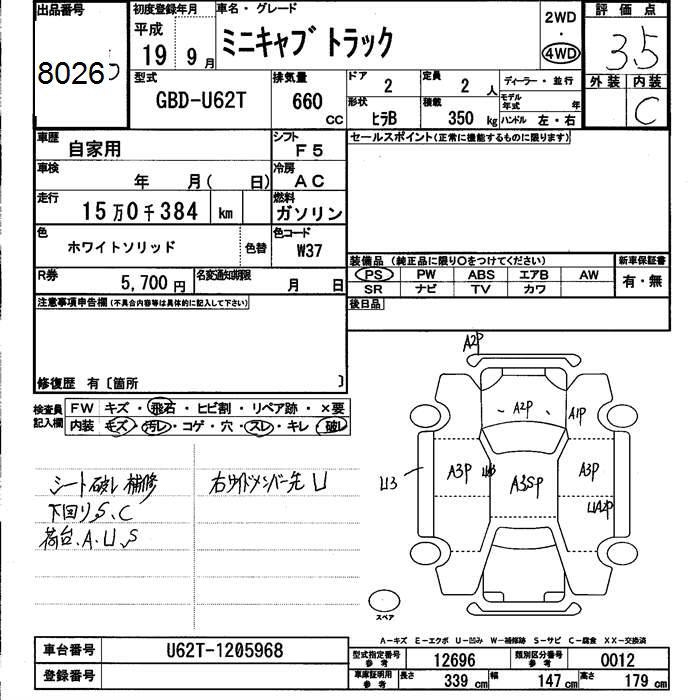 出品番号
80265
初度登録年月
平成
19 9月
車名・グレード
ミニキャブ トラック
2WD
・
4WD
評価点
3.5
外装 内装
C
型式
GBD-U62T
排気量
660
cc
ドア
2
定員
2 人
ディーラー・並行
形状
ヒラB
積載
350 kg
モデル年式 年
ハンドル 左・右
車歴
自家用
シフト
F5
車検
年 月( 日)
冷房
AC
走行
15万0千384 km
燃料
ガソリン
色
ホワイトソリッド
色替
色コード
W37
R券
5,700円
名変通知期限
月 日
セールスポイント(正常に機能するものに限ります)
装備品 (純正品に限り〇をつけてください)
PS PW ABS エアB AW
SR ナビ TV カワ
新車保証書
有・無
後日品
注意事項申告欄(不具合内容等は具体的に記入して下さい)
修復歴 有〔箇所 〕
検査員記入欄
FW キズ・飛石・ヒビ割・リペア跡・×要
内装 キズ・汚レ・コゲ・穴・スレ・キレ・破レ
シート破レ補修
下回りS、C
荷台、A、U、S
右サイドメンバー先 U
A2P
A2P
A1P
U3
A3P
U3
A3SP
A3P
UA2P
スペア
A-キズ E-エクボ U-凹み W-補修跡 S-サビ C-腐食 XX-交換済
車台番号
U62T-1205968
登録番号
型式指定番号
参考
12696
類別区分番号
参考
0012
車庫証明用
参考
長さ 339 cm
幅 147 cm
高さ 179 cm